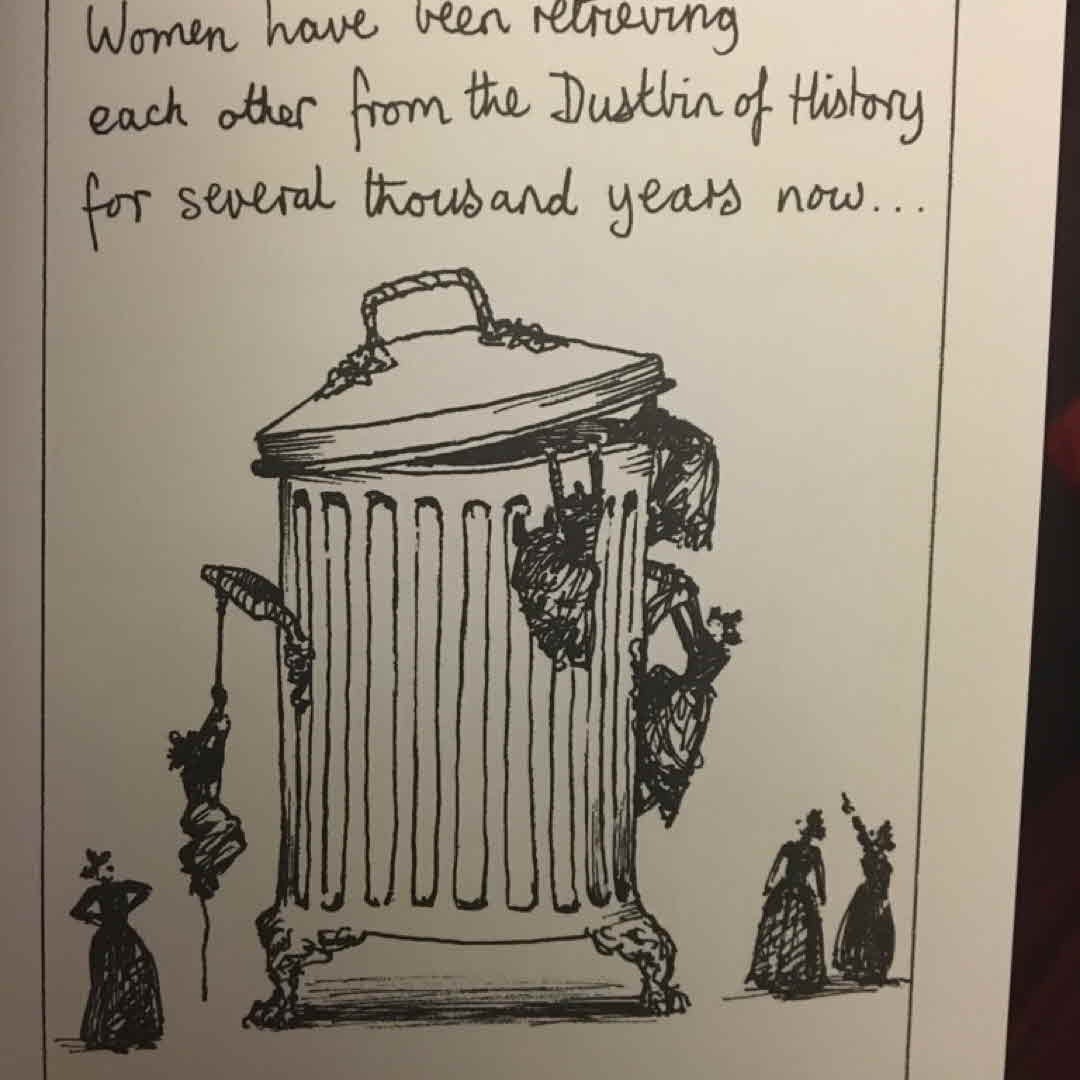 Women have been retrieving
each other from the Dustbin of History
for several thousand years now...